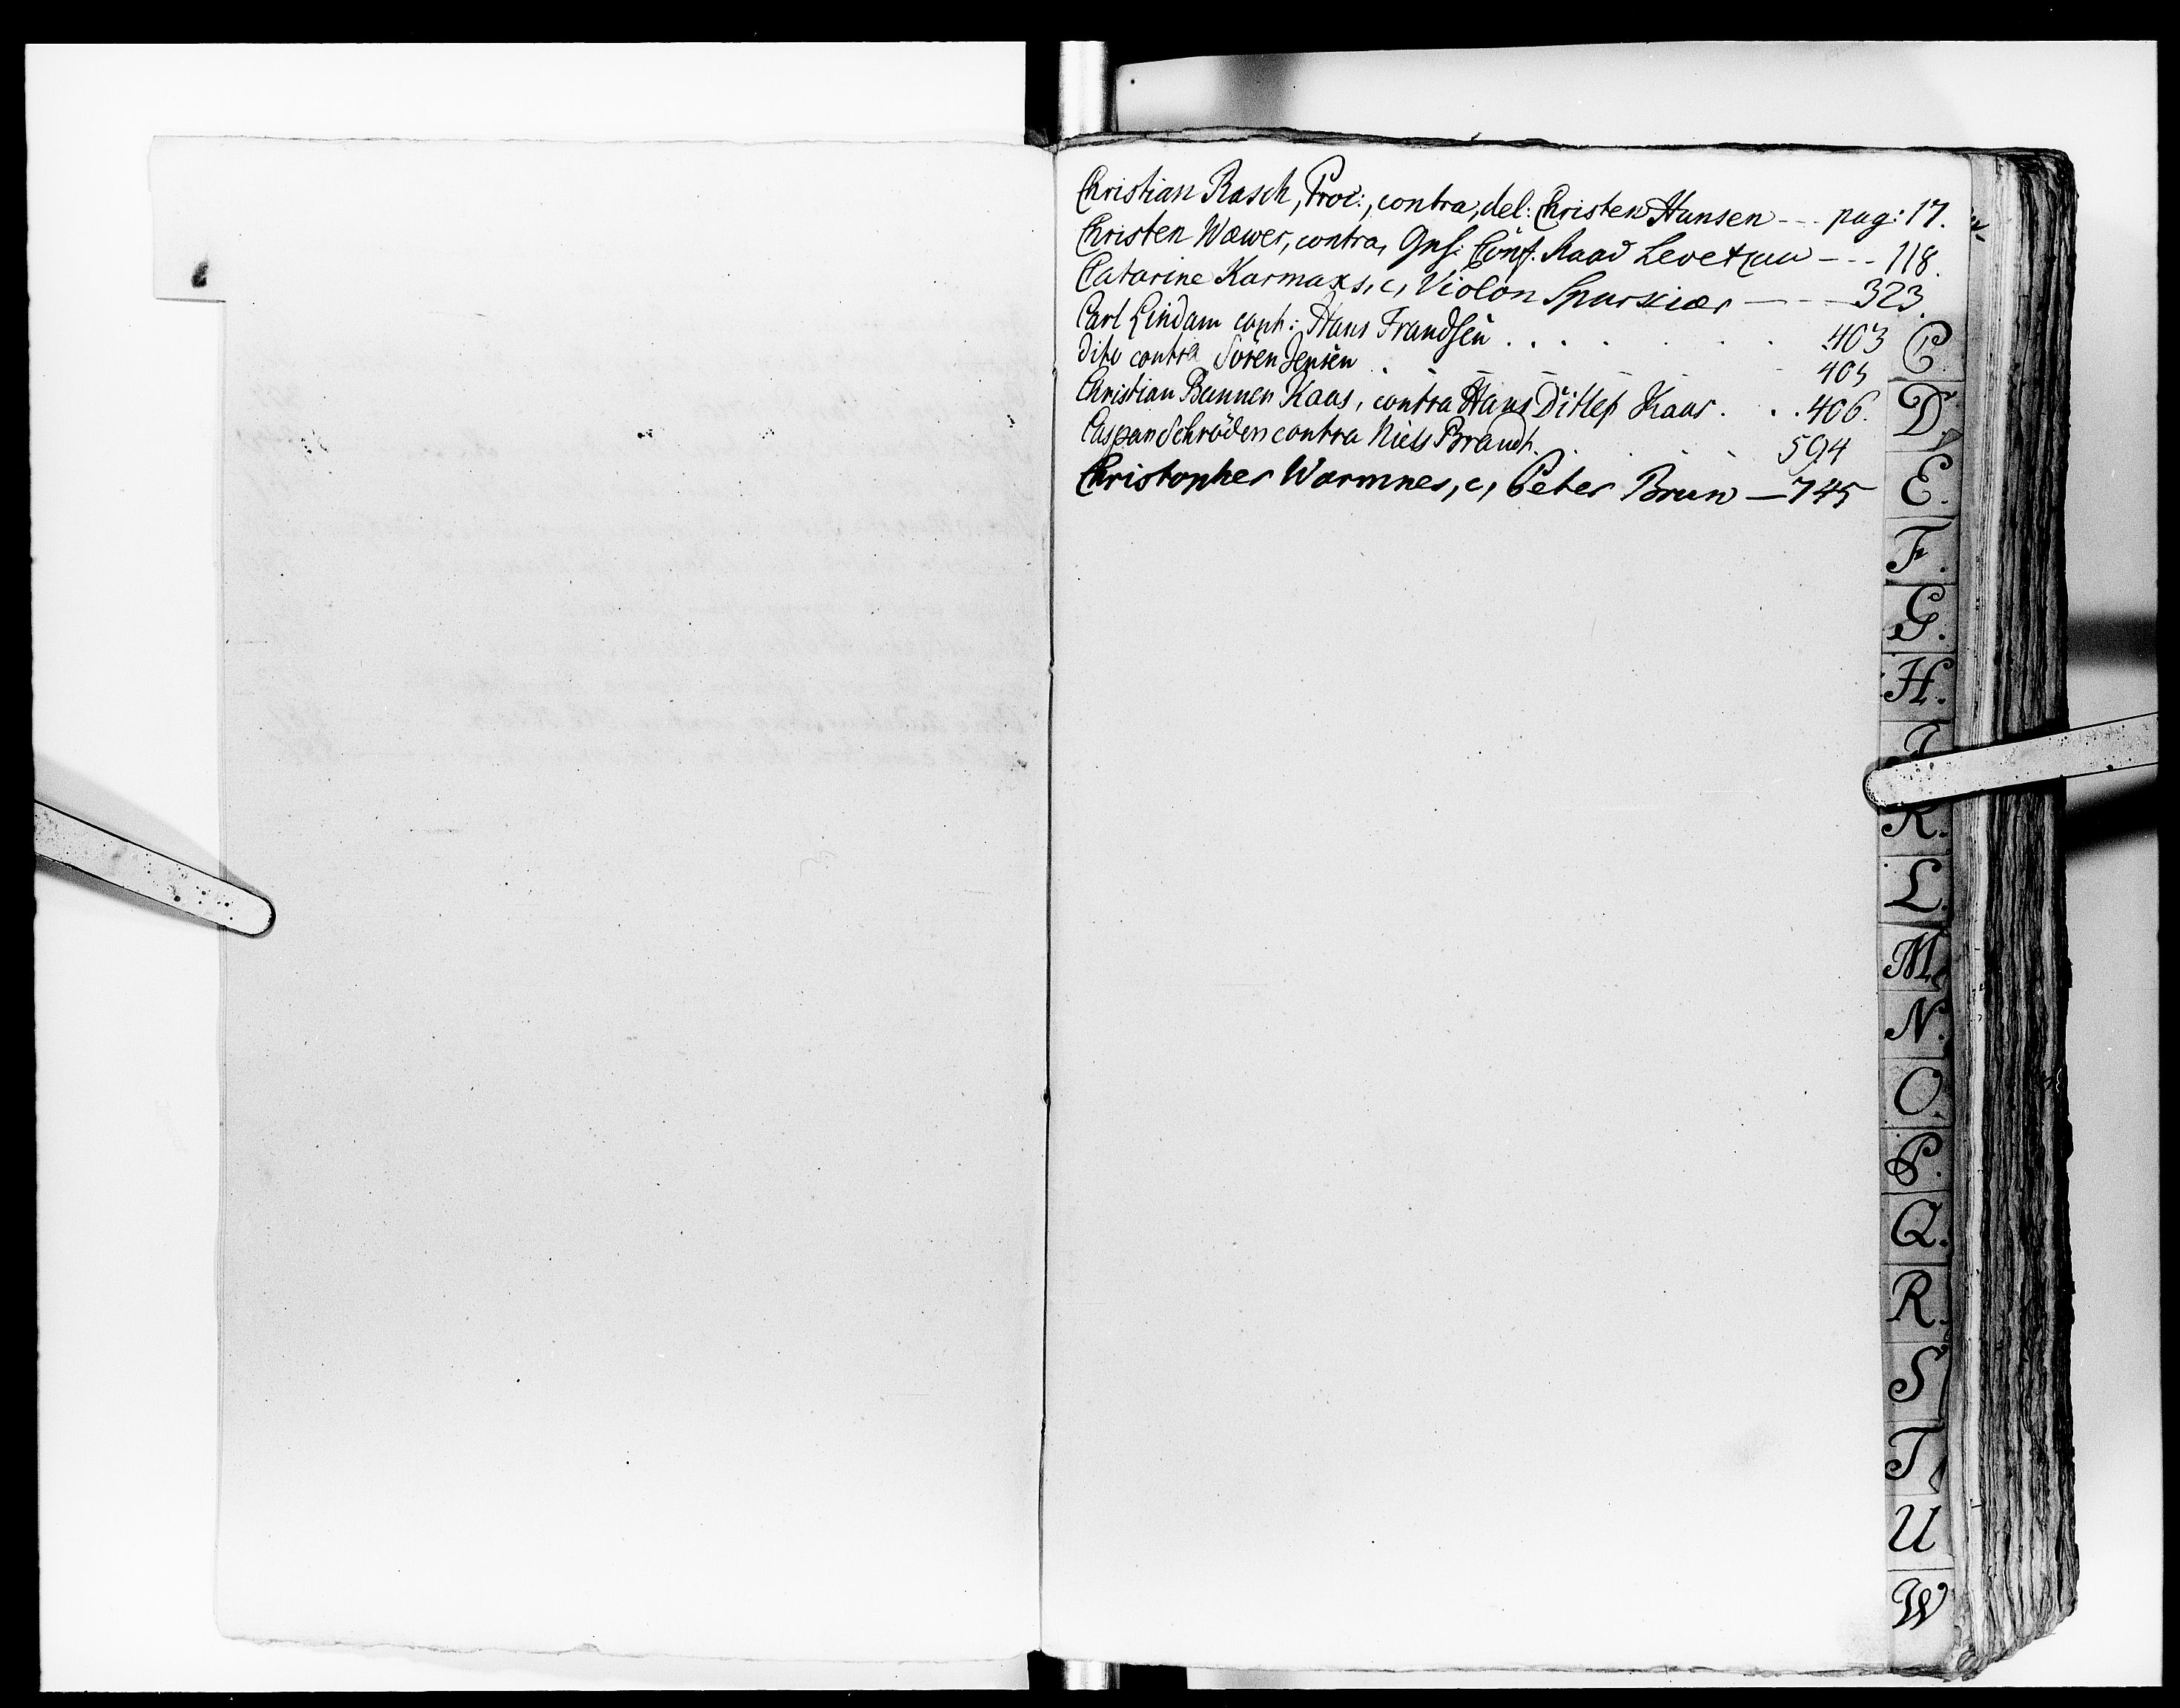 Christian Rasch, Proc:, contra, del: Christen Hansen --- pag: 17.
Christen Wæwer, contra, Conf. Raad Levetzau --- 118.
Catarine Karmaxs, c, Violon Sparkiær --- 323.
Carl Lindam cont: Hans Frandsen . . . . . . . 403
dito contra Sören Jensen . - - - - - 405
Christian Bennen Kaas, contra Hans Ditlef Kaas . . . 406.
Caspar Schröder contra Niels Brandt. . . . 594
Christopher Warmnes, c, Peter Brun — 745
C.
D.
E.
F.
G.
H.
I
K.
L.
M.
N.
O.
P.
Q.
R.
S
T
U
W